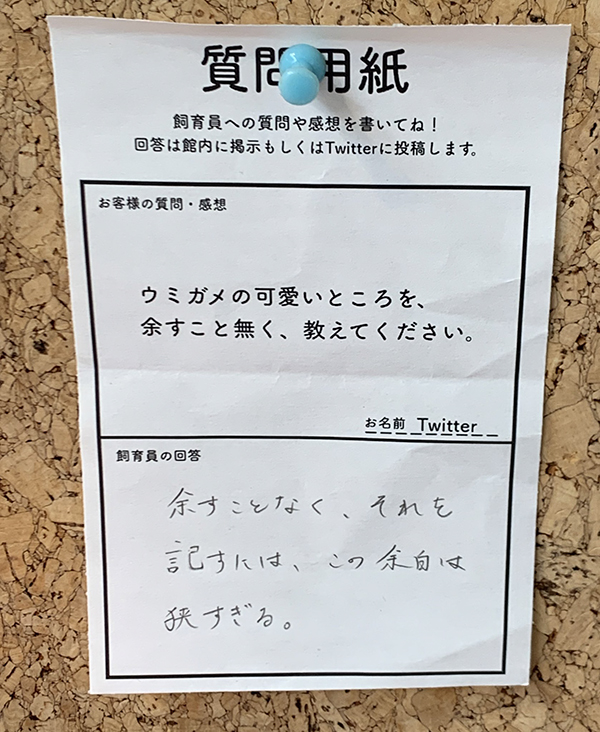 質問用紙
飼育員への質問や感想を書いてね！
回答は館内に掲示もしくはTwitterに投稿します。
お客様の質問・感想
ウミガメの可愛いところを、
余すこと無く、教えてください。
お名前 Twitter
飼育員の回答
余すことなく、それを
記すには、この余白は
狭すぎる。